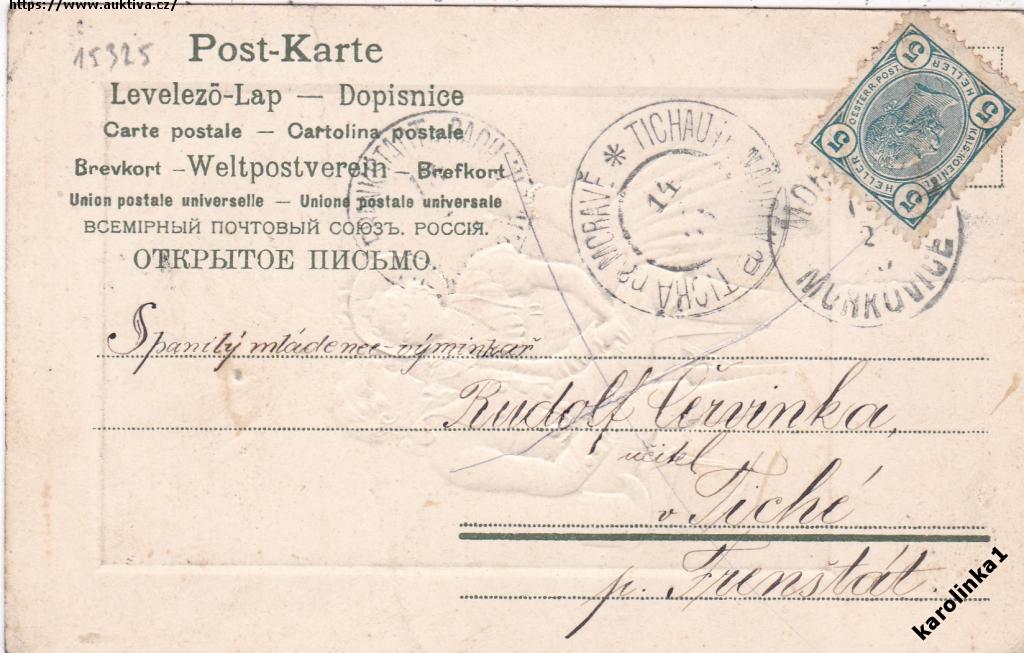 https://www.auktiva.cz/
15325
Post-Karte
Levelező-Lap — Dopisnice
Carte postale — Cartolina postale
Brevkort — Weltpostverein — Brefkort
Union postale universelle — Unione postale universale
ВСЕМІРНЫЙ ПОЧТОВЫЙ СОЮЗЪ. РОССІЯ.
ОТКРЫТОЕ ПИСЬМО.
5 5 5 5
OESTERR. POST.
KAIS. KOENIGL.
HELLER HELLER
TICHAU
TICHÁ na MORAVĚ
14
2
MORKOVICE
Spanilý mládenec - výminkař
Rudolf Červinka,
učitel
v Tiché
p. Frenštát.
karolinka1